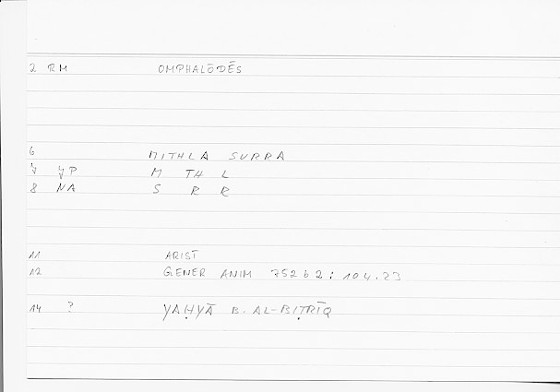 2 RM OMPHALŌDĒS
6 MITHLA SURRA
7 YP M TH L
8 NA S R R
11 ARIST
12 GENER ANIM 752b2: 104.23
14 ? YAḤYĀ B. AL-BIṬRĪQ